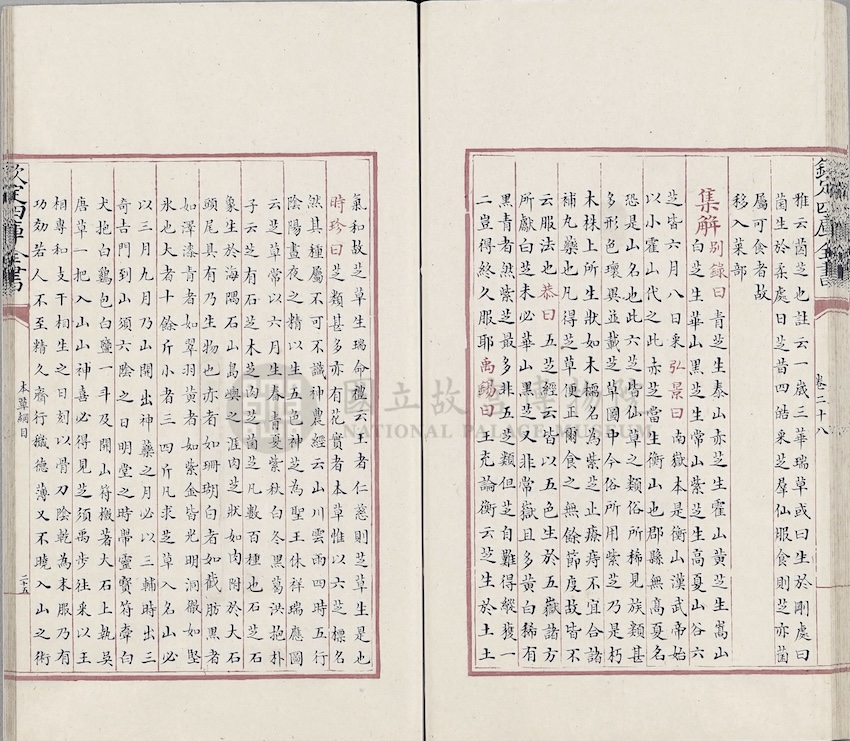 欽定四庫全書
卷二十八
雅云菌芝也註云一歲三華瑞草或曰生於剛處曰
菌生於柔處曰芝昔四皓采芝羣仙服食則芝亦菌
屬可食者故
移入菜部
集解别錄曰青芝生泰山赤芝生霍山黄芝生嵩山
白芝生華山黑芝生常山紫芝生高夏山谷六
芝皆六月八日采弘景曰南嶽本是衡山漢武帝始
以小霍山代之此赤芝當生衡山也郡縣無高夏名
恐是山名也此六芝皆仙草之類俗所稀見族類甚
多形色瓌異並載芝草圖中今俗所用紫芝乃是朽
木株上所生狀如木檽名為紫芝止療痔不宜合諸
補丸藥也凡得芝草便正爾食之無餘節度故皆不
云服法也恭曰五芝經云皆以五色生於五嶽諸方
所獻白芝未必華山黑芝又非常嶽且多黄白稀有
黑青者然紫芝最多非五芝類但芝自難得縱獲一
二豈得終久服耶禹錫曰王充論衡云芝生於土土
氣和故芝草生瑞命禮云王者仁慈則芝草生是也
時珍曰芝類甚多亦有花實者本草惟以六芝標名
然其種屬不可不識神農經云山川雲雨四時五行
陰陽晝夜之精以生五色神芝為聖王休祥瑞應圖
云芝草常以六月生春青夏紫秋白冬黑葛洪抱朴
子云芝有石芝木芝肉芝菌芝凡數百種也石芝石
象生於海隅石山島嶼之涯肉芝狀如肉附於大石
頭尾具有乃生物也赤者如珊瑚白者如截肪黑者
如澤漆青者如翠羽黄者如紫金皆光明洞徹如堅
氷也大者十餘斤小者三四斤凡求芝草入名山必
以三月九月乃山開出神藥之月必以三輔時出三
奇吉門到山須六陰之日明堂之時帶靈寳符牽白
犬抱白鷄包白鹽一斗及開山符檄著大石上執吳
唐草一把入山山神喜必得見芝須禹步往采以王
相專和支干相生之日刻以骨刀陰乾為末服乃有
功効若人不至精久齋行穢德薄又不曉入山之術
欽定四庫全書
本草綱目
二十五
國立故宮博物院
NATIONAL PALACE MUSEUM